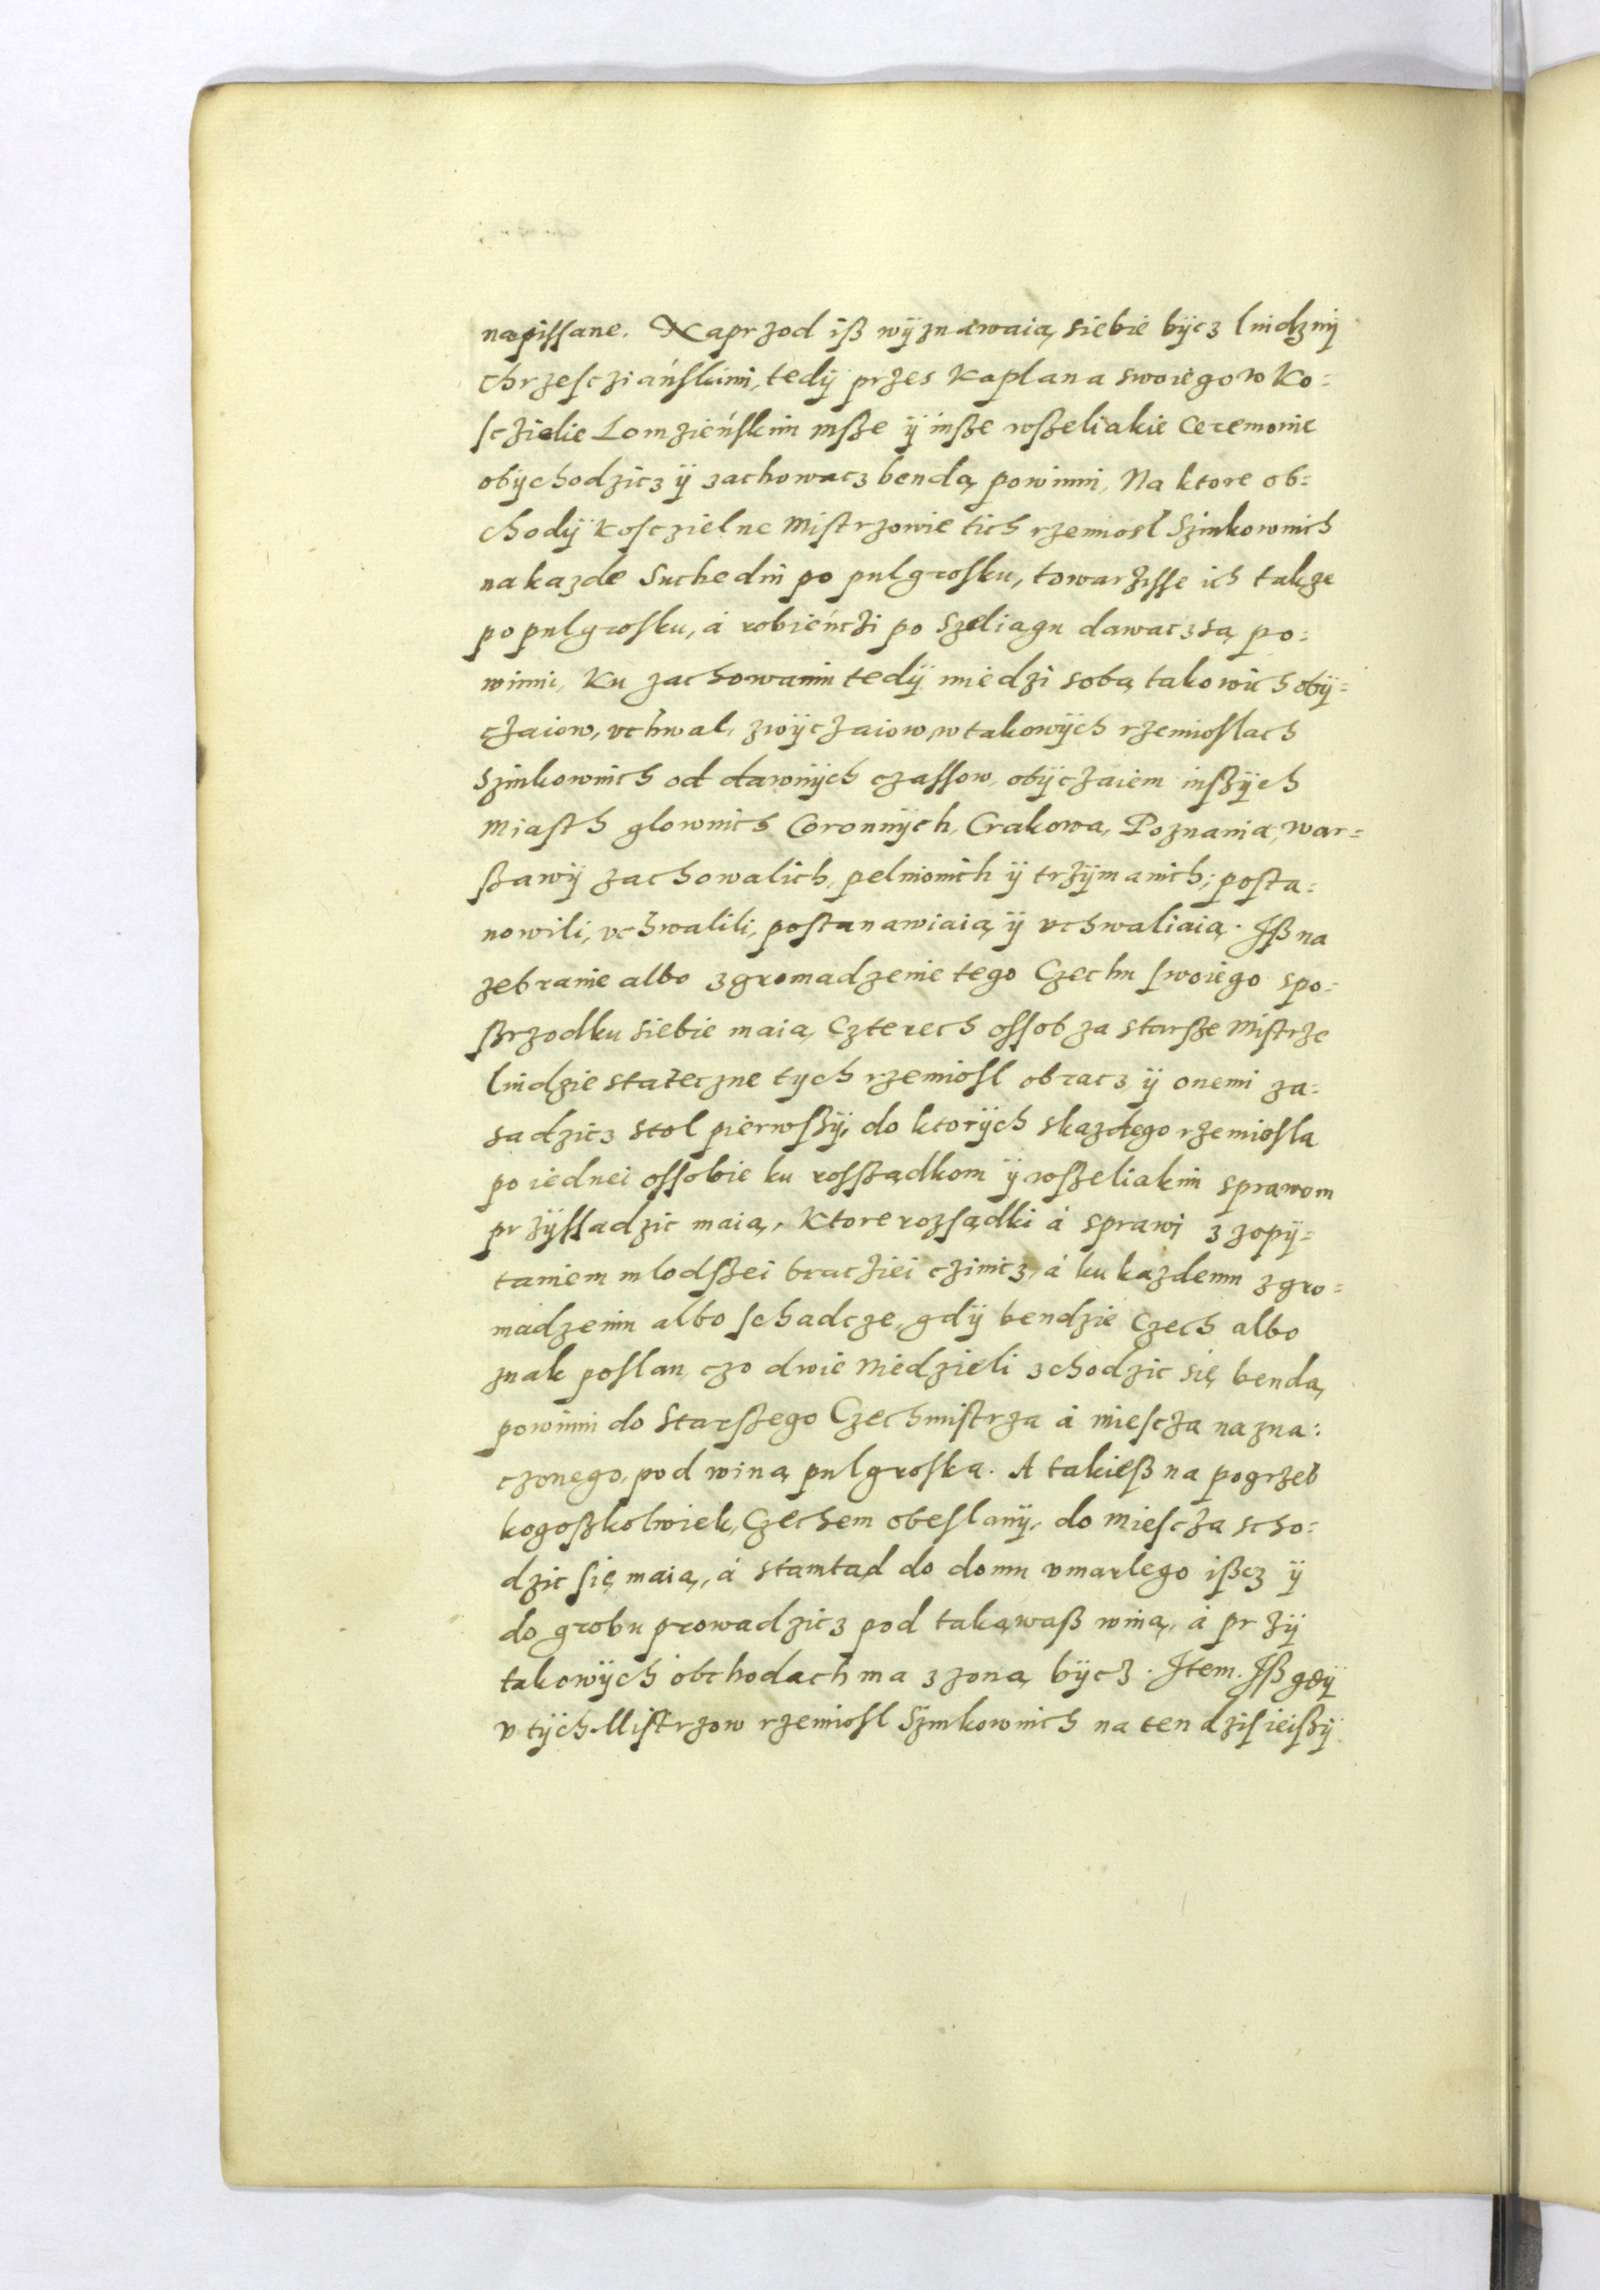 napissane. Naprzod iß wÿznawaią siebie bÿcz liudzmÿ
chrzescziańskimi, tedÿ przes Kaplana swoiego w Ko=
sczielie Lomzieńskim msze ÿ insze wszeliakie Ceremonie
obÿchodzicz ÿ zachowacz bendą powinni, Na ktore ob=
chodÿ kosczielne Mistrzowie tich rzemiosł Szinkownich
na kazde Suchedni po pulgrosku, towarzisse ich takze
po pulgrosku, á robieńczi po Szeliągu dawacz są po=
winni, Ku zachowaniu tedÿ miedzi sobą takowich obÿ=
czaiow, uchwal, zwÿczaiow, w takowÿch rzemioslach
Szinkownich od dawnÿch czassow, obÿczaiem inszÿch
Miasth glownich Coronnÿch, Crakowa, Poznania, War=
szawÿ zachowalich, pelnionich ÿ trzÿmanich; posta=
nowili, vchwalili, postanawiaią ÿ vchwaliaią. Iß na
zebranie albo zgromadzenie tego Czechu swoiego spo=
szrzodku siebie maią Czterech ossob za starsze Mistrze
liudzie stateczne tych rzemiosl obracz ÿ onemi za=
sadzicz stol pierwszÿ, do ktorÿch skazdego rzemiosla
po iednei ossobie ku rossządkom ÿ wszeliakim sprawom
przÿssadzic maią, Ktore rozsądki á sprawi z zopÿ=
taniem mlodszei bracziei czinicz, á ku kazdemu zgro=
madzeniu albo schadcze, gdÿ bendzie Czech albo
znak poslan, czo dwie Niedzieli zchodzic się bendą
powinni do Starszego Czechmistrza á miescza nazna=
czonego, pod winą pulgroska. A takieß na pogrzeb
kogoszkolwiek, Czechem obeslanÿ, do Miescza scho=
dzic się maią, á stamtąd do domu vmarlego iszcz ÿ
do grobu prowadzicz pod takąwaß winą, á przÿ
takowÿch obchodach ma z zoną bÿcz. Item. Iß gdÿ
v tÿch Mistrzow rzemiosl Szinkownich na ten dzisieiszÿ